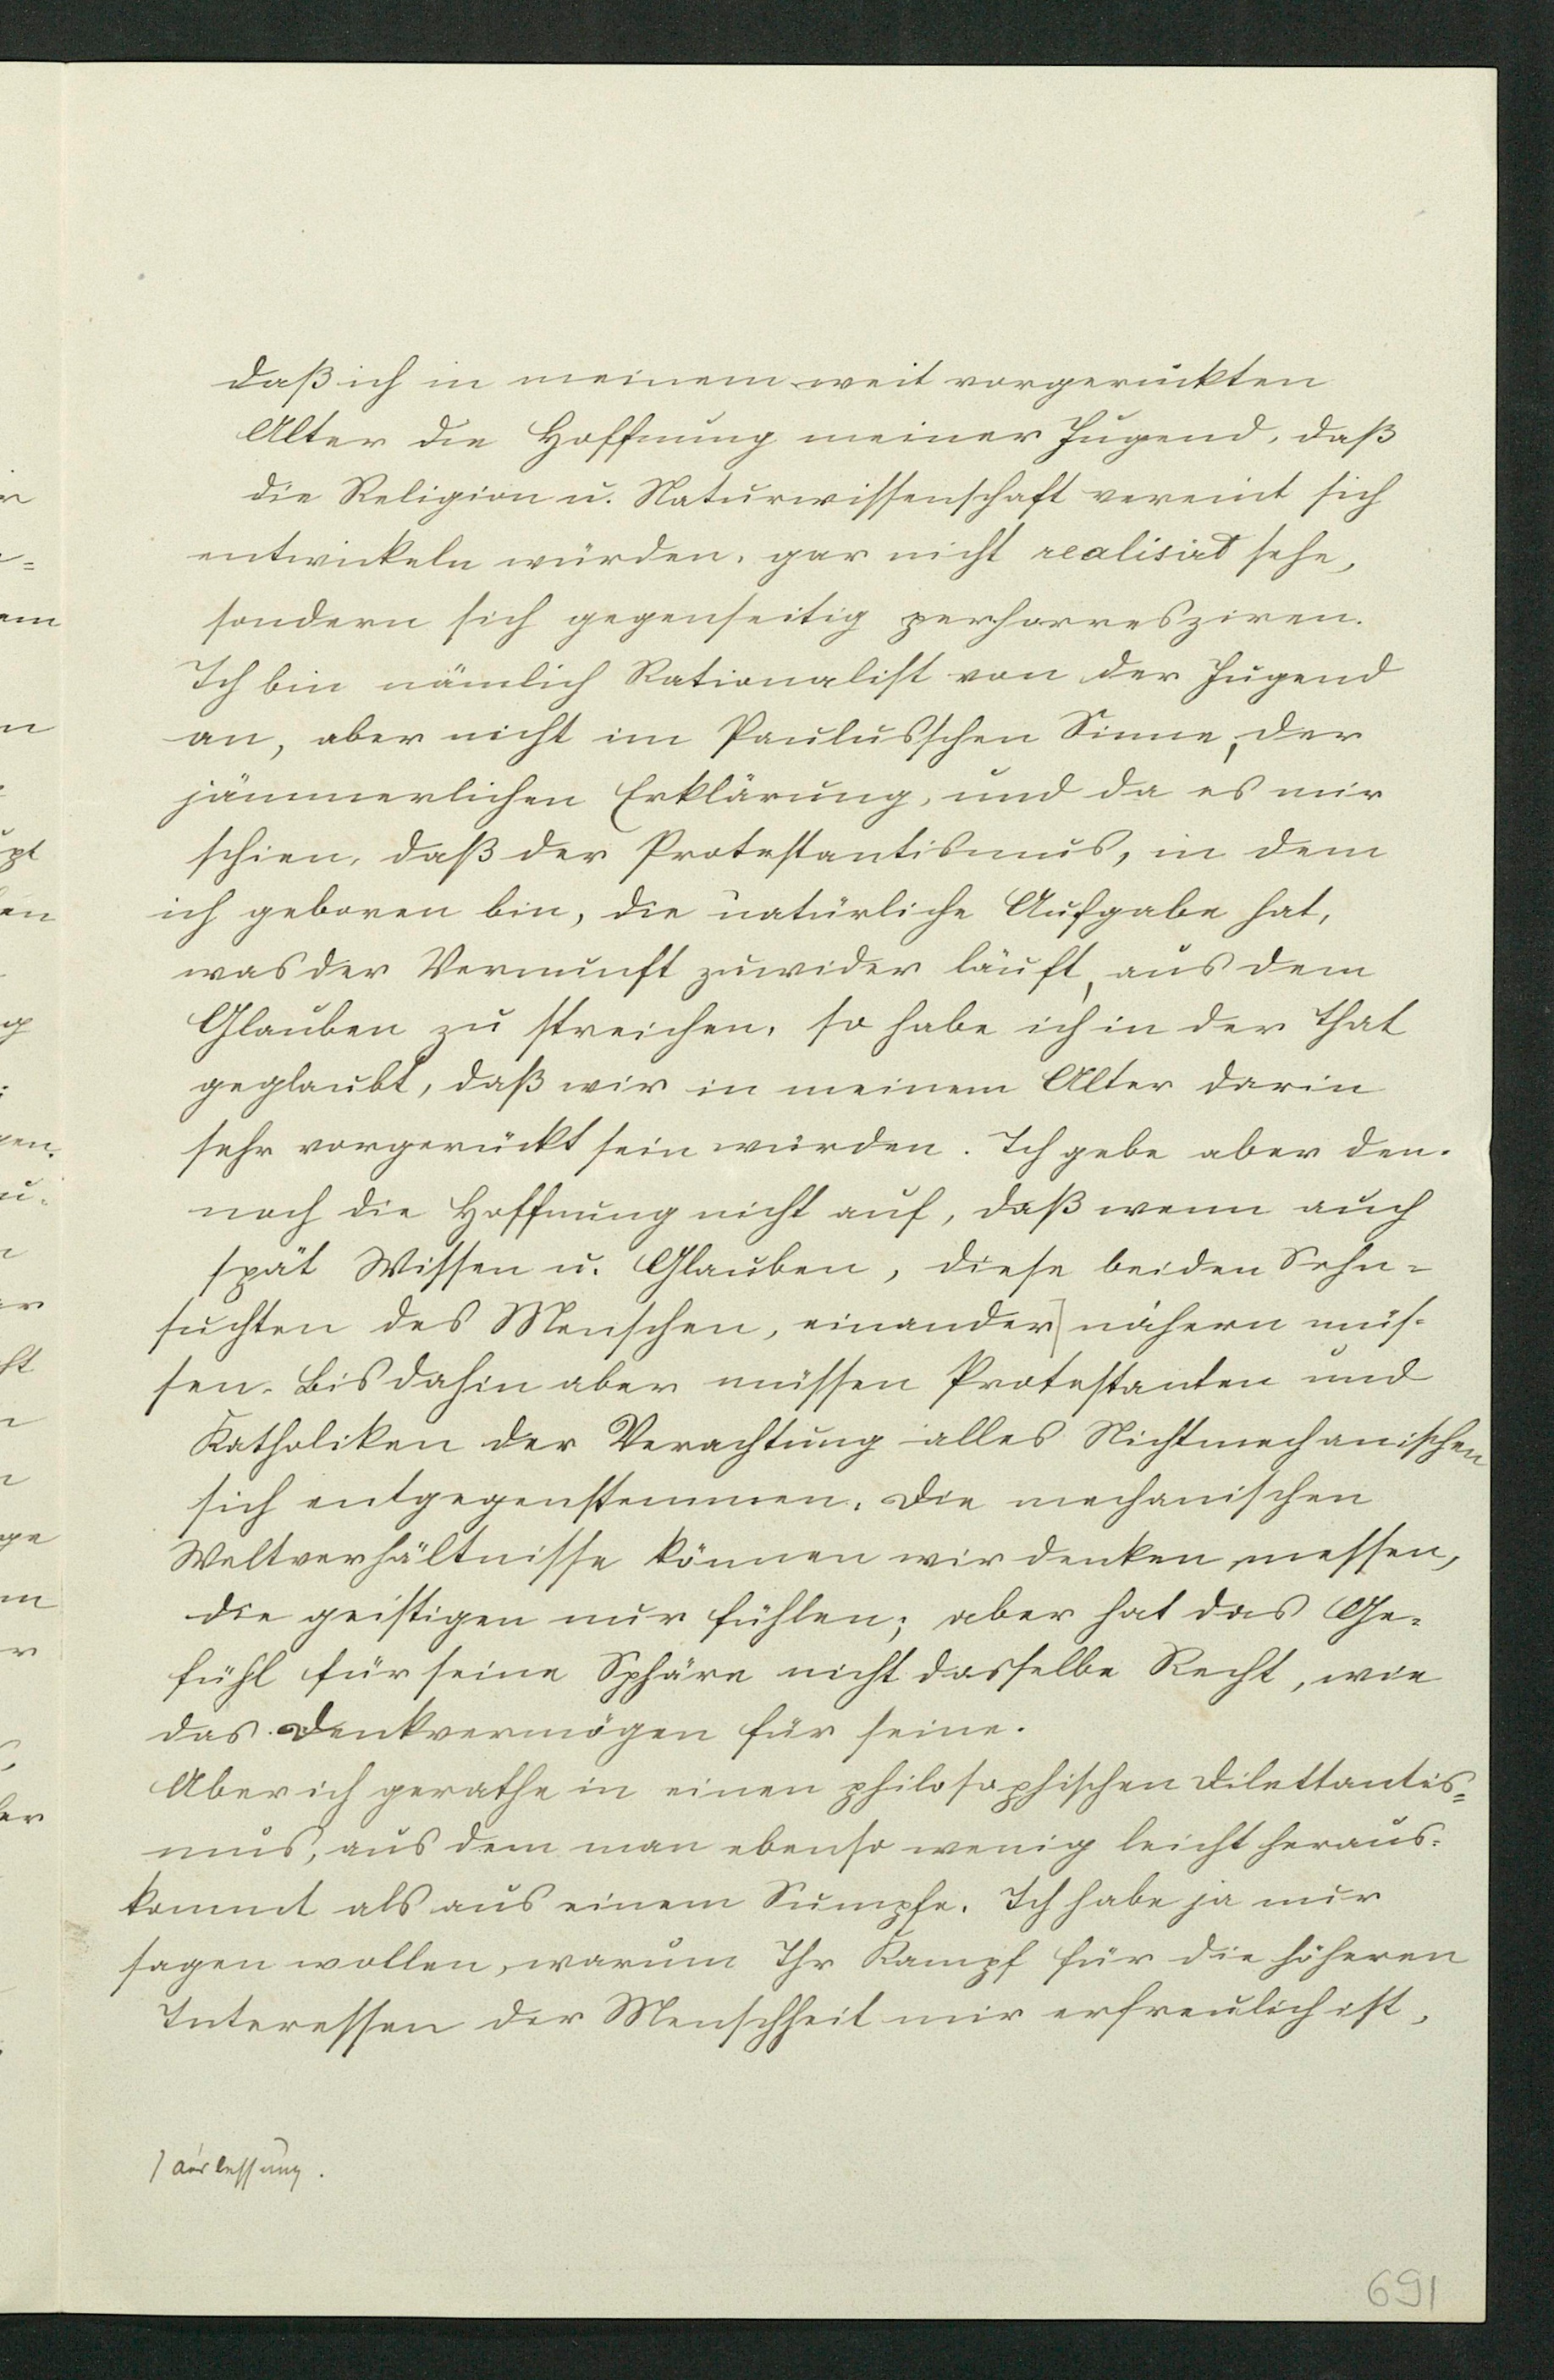 daß ich in meinem weit vorgerückten
Alter die Hoffnung meiner Jugend, daß
die Religion u. Naturwissenschaft vereint sich
entwickeln würden, gar nicht realisirt sehe,
sondern sich gegenseitig perhorresziren.
Ich bin nämlich Rationalist von der Jugend
an, aber nicht im Paulusschen Sinne, der
jämmerlichen Erklärung, und da es mir
schien, daß der Protestantismus, in dem
ich geboren bin, die natürliche Aufgabe hat,
was der Vernunft zuwider läuft, aus dem
Glauben zu streichen, so habe ich in der That
geglaubt, daß wir in meinem Alter darin
sehr vorgerückt sein würden. Ich gebe aber den-
noch die Hoffnung nicht auf, daß wenn auch
spät Wissen u. Glauben, diese beiden Sehn=
suchten des Menschen, einander] nähern müs-
sen. Bis dahin aber müssen Protestanten und
Katholiken der Verachtung alles Nichtmechanischen
sich entgegenstemmen. Die mechanischen
Weltverhältnisse können wir denken, messen,
die geistigen nur fühlen; aber hat das Ge=
fühl für seine Sphäre nicht dasselbe Recht, wie
das Denkvermögen für seine.
Aber ich gerathe in einen philosophischen Dilettantis=
mus, aus dem man ebenso wenig leicht heraus-
kommt als aus einem Sumpfe. Ich habe ja nur
sagen wollen, warum Ihr Kampf für die höheren
Interessen der Menschheit mir erfreulich ist,
691